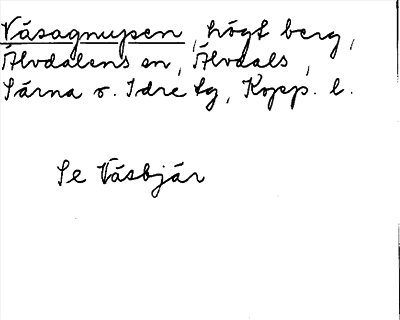 Våsagnupen, högt berg,
Älvdalens sn, Älvdals,
Särna o. Idre tg, Kopp. l.
Se Våsbjär